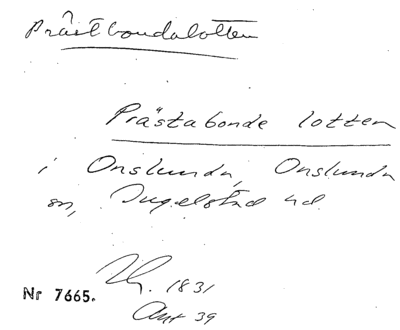 Prästbondalotten
Prästabonde lotten
i Onslunda, Onslunda
sn, Ingelstad hd.
Nr 7665.
1831
Akt 39